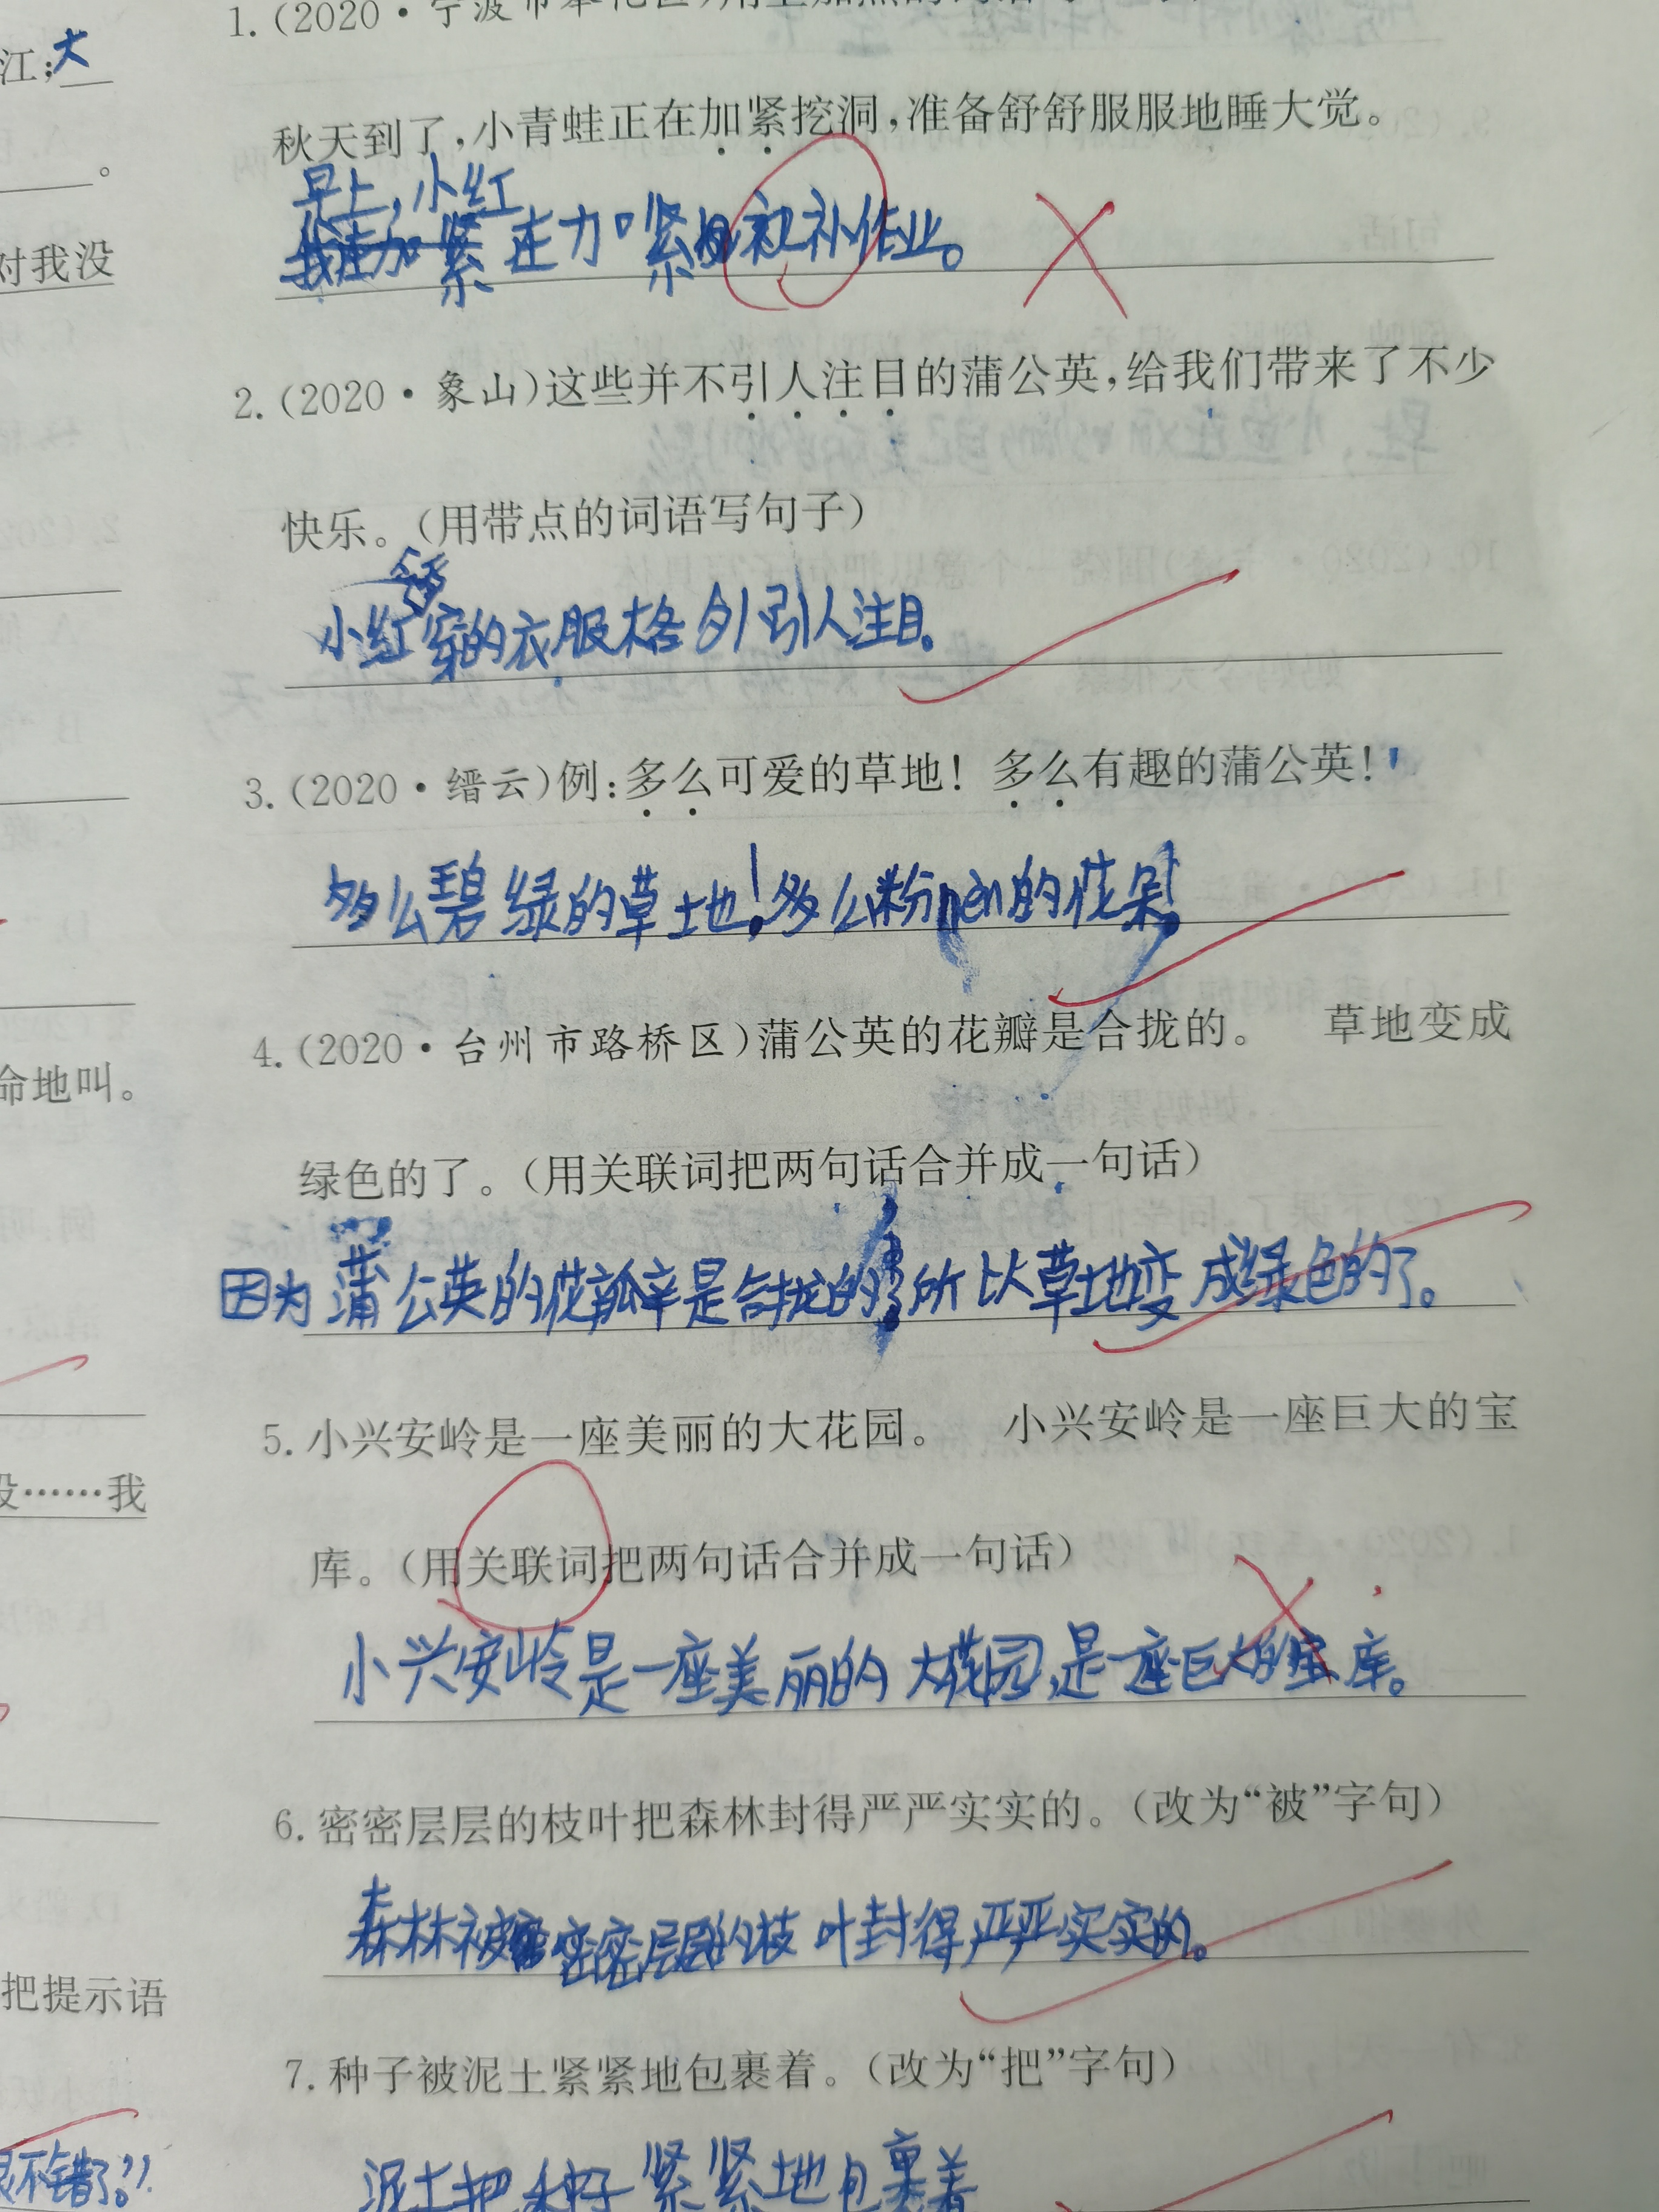 江；大
。
对我没
命地叫。
没……我
把提示语
很不错了。”
1.(2020·宁波市奉化区)用上加点的词语
秋天到了，小青蛙正在加紧挖洞，准备舒舒服服地睡大觉。
早上，小红
在加紧补作业。
2.(2020·象山)这些并不引人注目的蒲公英，给我们带来了不少
快乐。(用带点的词语写句子)
小红穿的衣服格外引人注目。
3.(2020·缙云)例：多么可爱的草地！多么有趣的蒲公英！
多么碧绿的草地！多么粉nèn的花朵！
4.(2020·台州市路桥区)蒲公英的花瓣是合拢的。 草地变成
绿色的了。(用关联词把两句话合并成一句话)
因为蒲公英的花瓣是合拢的，所以草地变成绿色的了。
5.小兴安岭是一座美丽的大花园。 小兴安岭是一座巨大的宝
库。(用关联词把两句话合并成一句话)
小兴安岭是一座美丽的大花园，是一座巨大的宝库。
6.密密层层的枝叶把森林封得严严实实的。(改为“被”字句)
森林被密密层层的枝叶封得严严实实的。
7.种子被泥土紧紧地包裹着。(改为“把”字句)
泥土把种子紧紧地包裹着